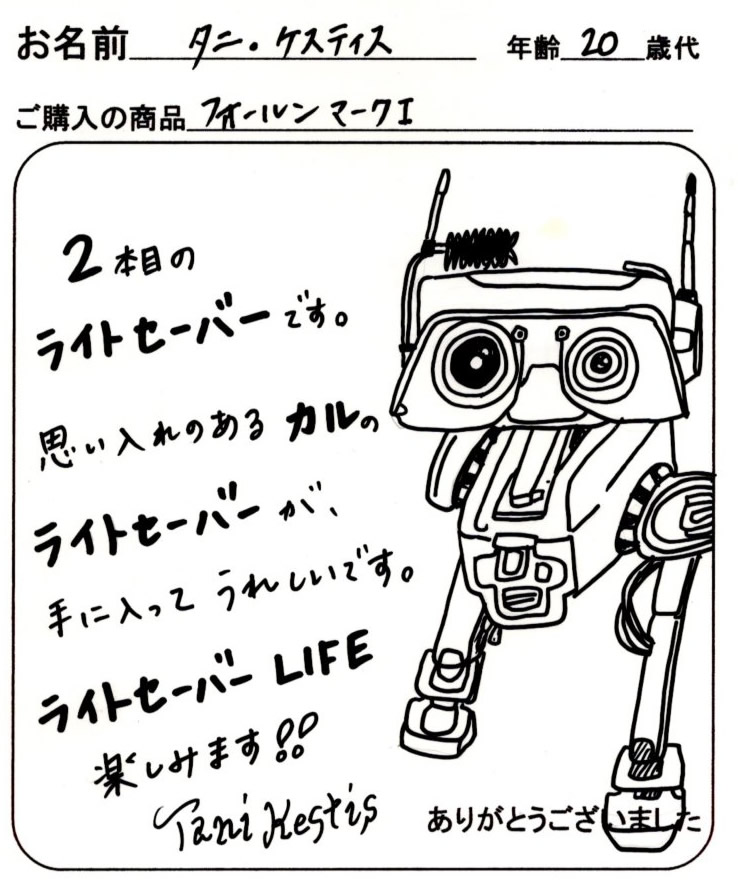 お名前 タニ・ケスティス 年齢 20 歳代
ご購入の商品 フォールンマークI
2本目の
ライトセーバーです。
思い入れのある カルの
ライトセーバーが、
手に入って うれしいです。
ライトセーバー LIFE
楽しみます!!
Tani Kestis
ありがとうございました